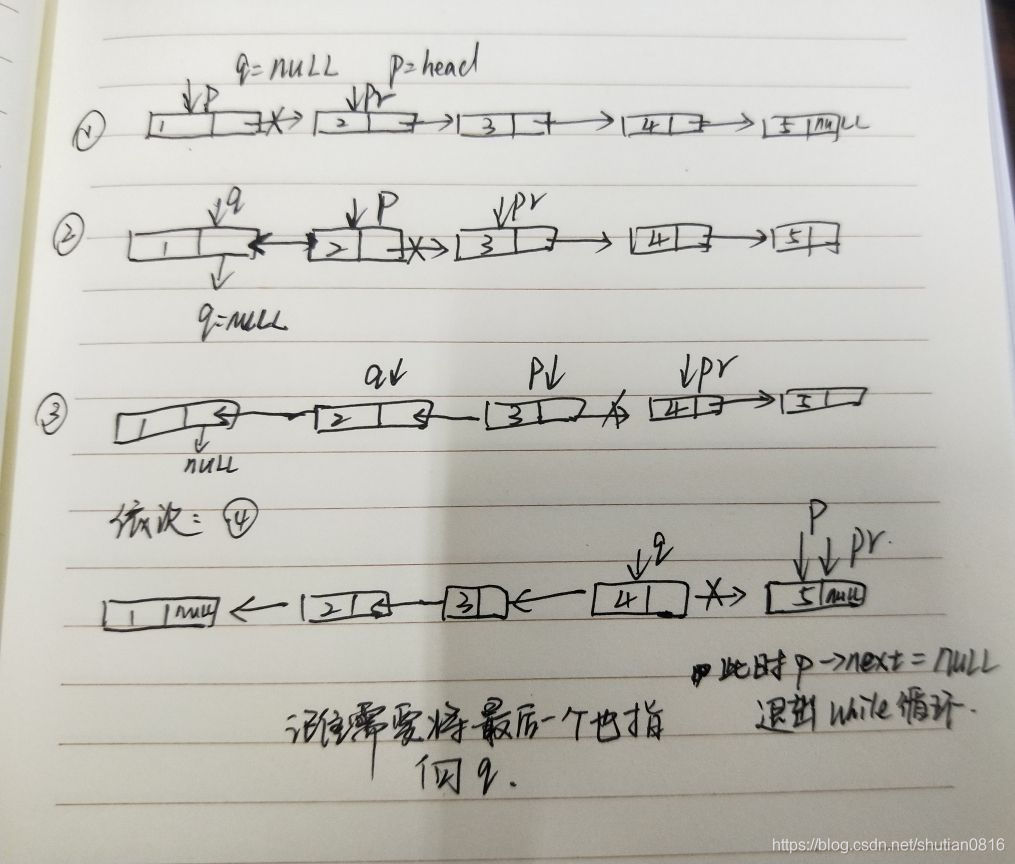 q=nuLL p=head
① ↓p ↓pr
1 2 3 4 5 nuLL
② ↓q ↓p ↓pr
1 2 3 4 5
q=nuLL
q↓ p↓ ↓pr
③ 1 2 3 4 5
null
依次: ④ p
↓q ↓pr.
1 null 2 3 4 5 null
此时 p→next = nuLL
退出 while 循环.
记住需要将最后一个也指
向 q.
https://blog.csdn.net/shutian0816